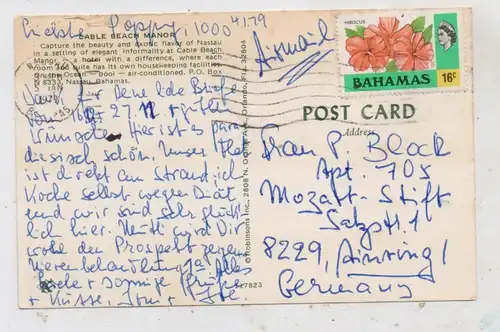 Liebste Poppy, 1000
4/1.79
CABLE BEACH MANOR
Capture the beauty and exotic flavor of Nassau
in a setting of elegant informality at Cable Beach
Manor — a hotel with a difference, where each
room and suite has its own housekeeping facilities
on the Ocean — pool — air-conditioned. P.O. Box
N 8333, Nassau, Bahamas.
Airmail
HIBISCUS
BAHAMAS 16c
POST CARD
Address
Dank für Deine liebe Brief
vom 16. + 27.12 + guten
Wünsche. Hier ist es para-
diesisch schön. Unser Hotel
ist direkt am Strand, ich
Koche selbst wegen Diät
und wir sind sehr glück-
lich hier. Wird Dir
wohl den Prospekt zeigen
Alles
Liebe + innige Grüsse
+ Küsse,
© Robinsons Inc., 2808 N. Orange Ave., Orlando, Fla. 32804
17823
Frau P. Block
Apt. 705
Mozart-Stift
Salzstr. 1
8229, Ainring/
Germany